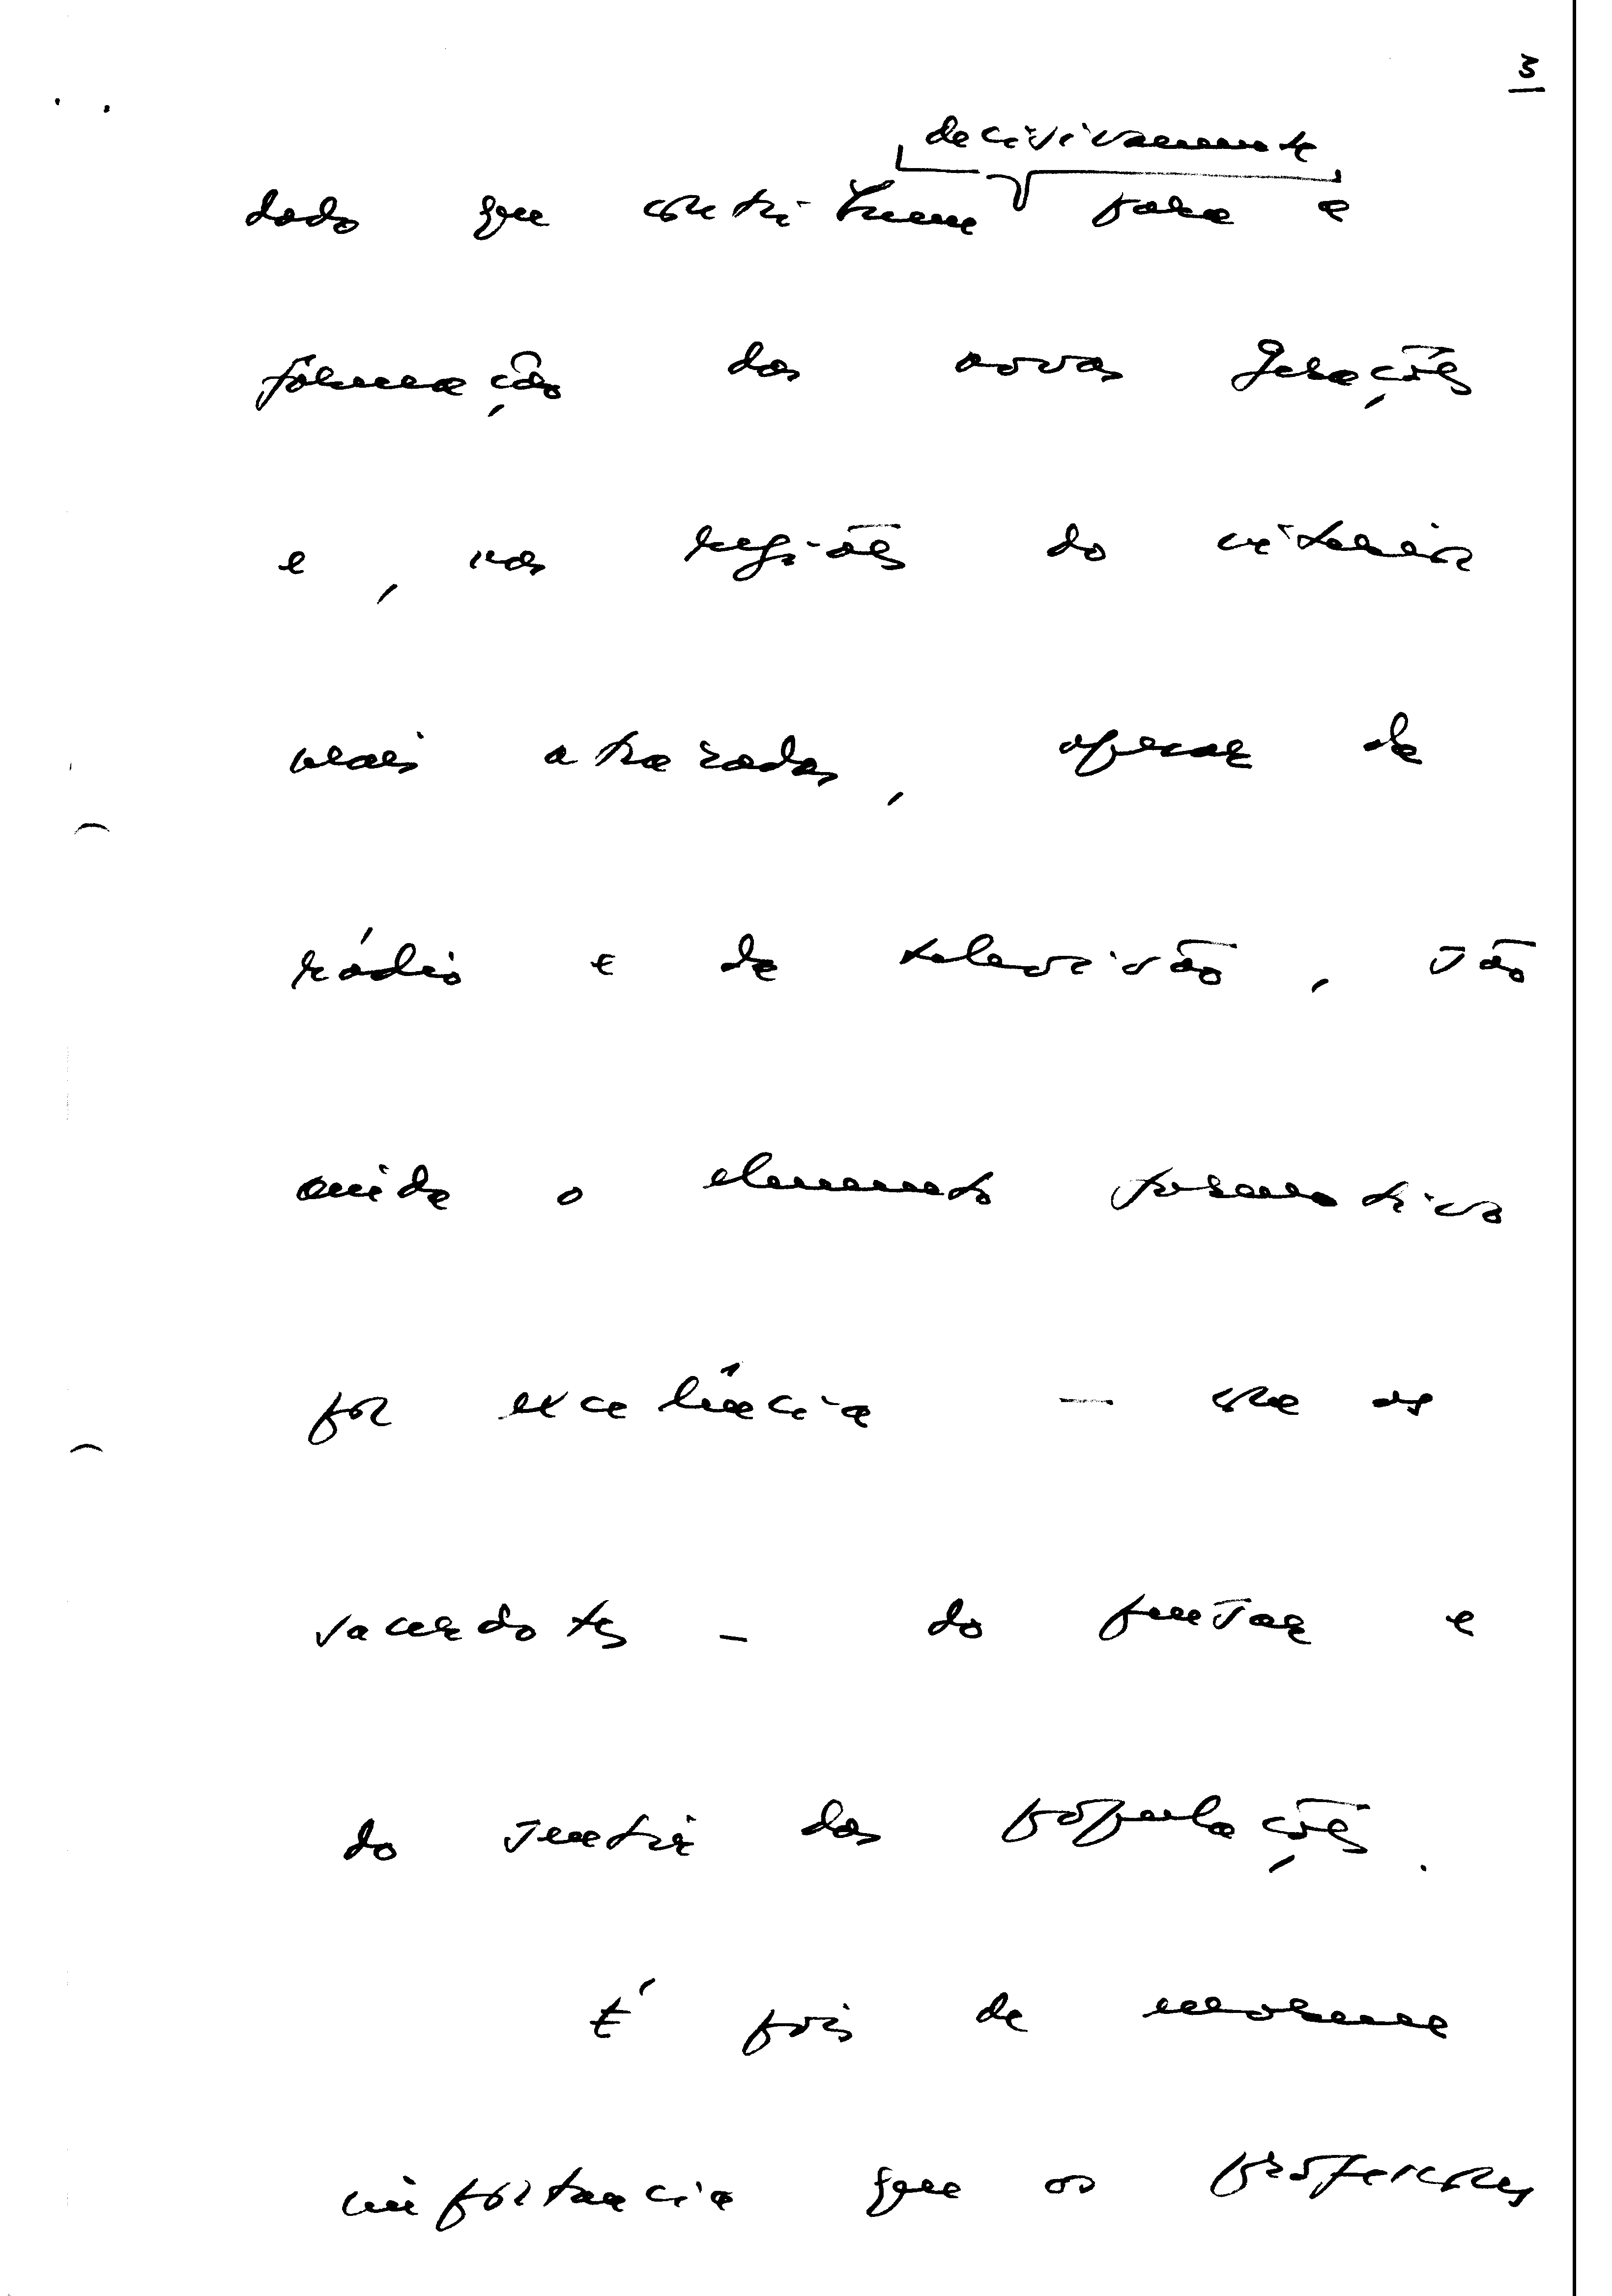 3
decisivamente
dado que contribuem para a
formação das novas gerações
e, nas regiões do interior
mais atrasadas, apesar da
rádio e da televisão, são
ainda o elemento formativo
por excelência — com os
sacerdotes — do pensar e
do sentir das populações.
É pois de enorme
importancia que os professores